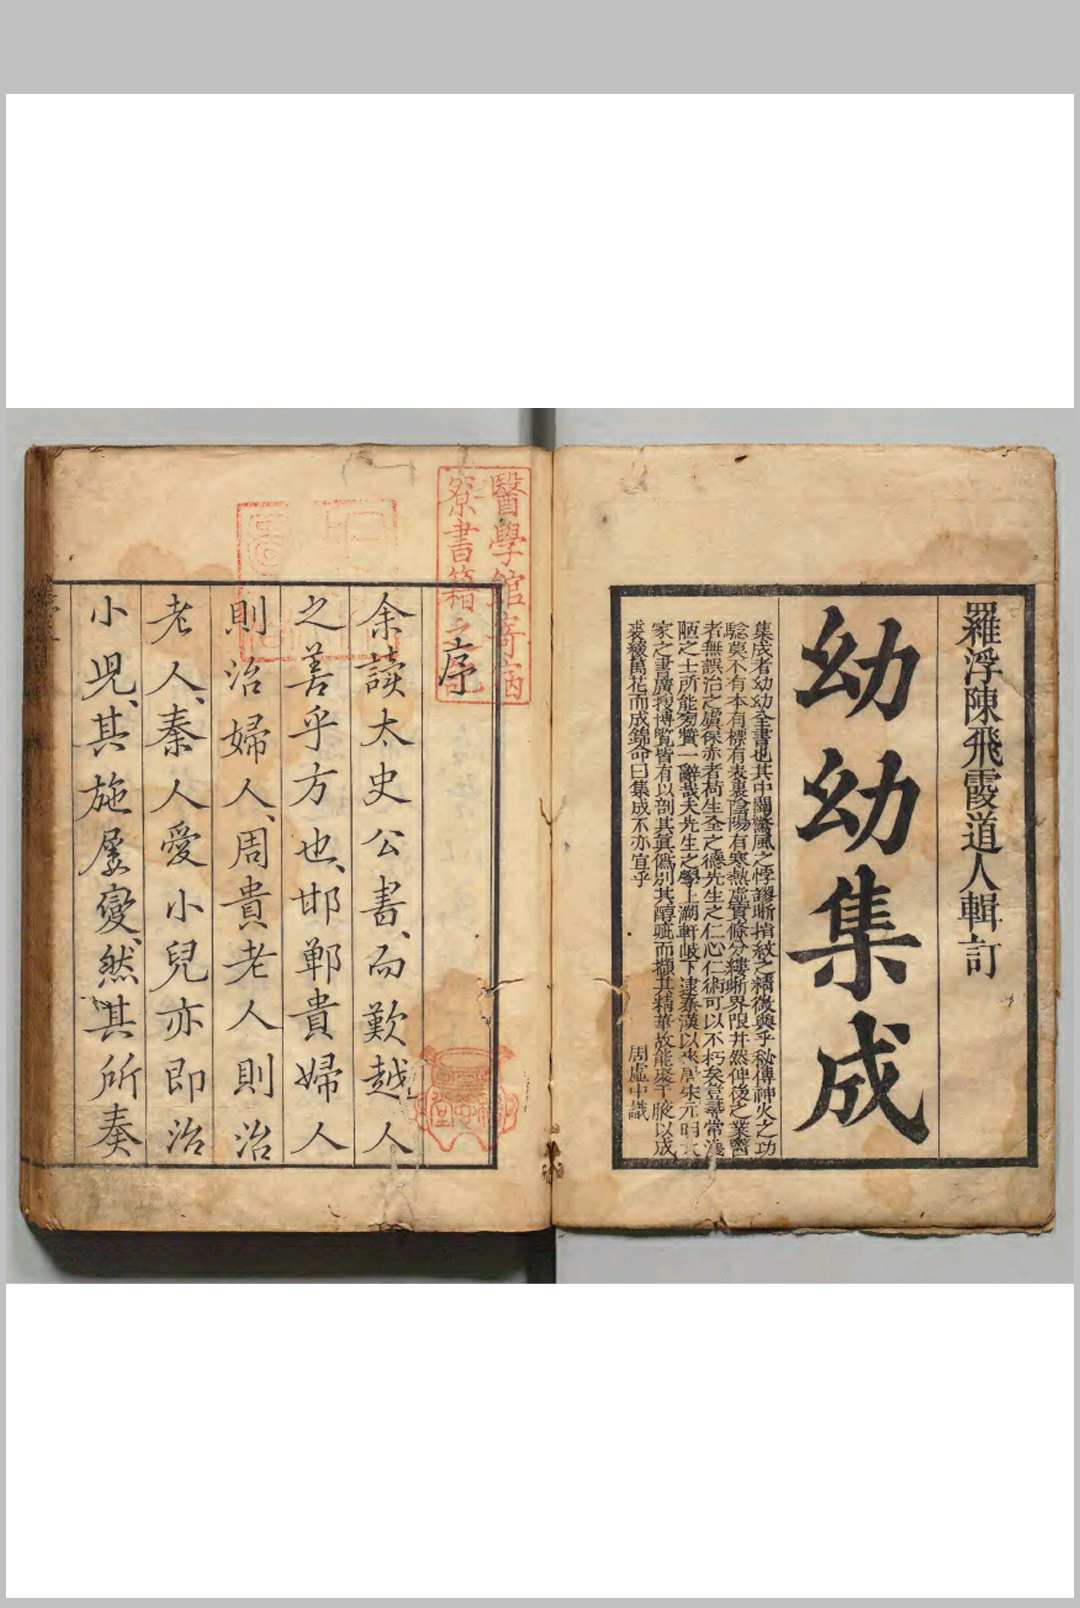 羅浮陳飛霞道人輯訂
幼幼集成
集成者幼幼全書也其中闢驚風之悖謬晰指紋之精微與乎秘傳神火之功
驗莫不有本有標有表裏陰陽有寒熱虛實條分縷晰界限井然俾後之業醫
者無誤治之虞保赤者荷生全之德先生之仁心仁術可以不朽矣豈尋常淺
陋之士所能勷贊一辭哉夫先生之學上溯軒岐下逮秦漢以來唐宋元明大
家之書廣搜博覽皆有以剖其真僞別其醇疵而擷其精華故能聚千腋以成
裘釀萬花而成錦命曰集成不亦宜乎
周虛中識
醫學館寄宿
寮書籍之
序
余讀太史公書、而歎越人
之善乎方也、邯鄲貴婦人
則治婦人、周貴老人則治
老人、秦人愛小兒亦即治
小児、其施屢變、然其所奏